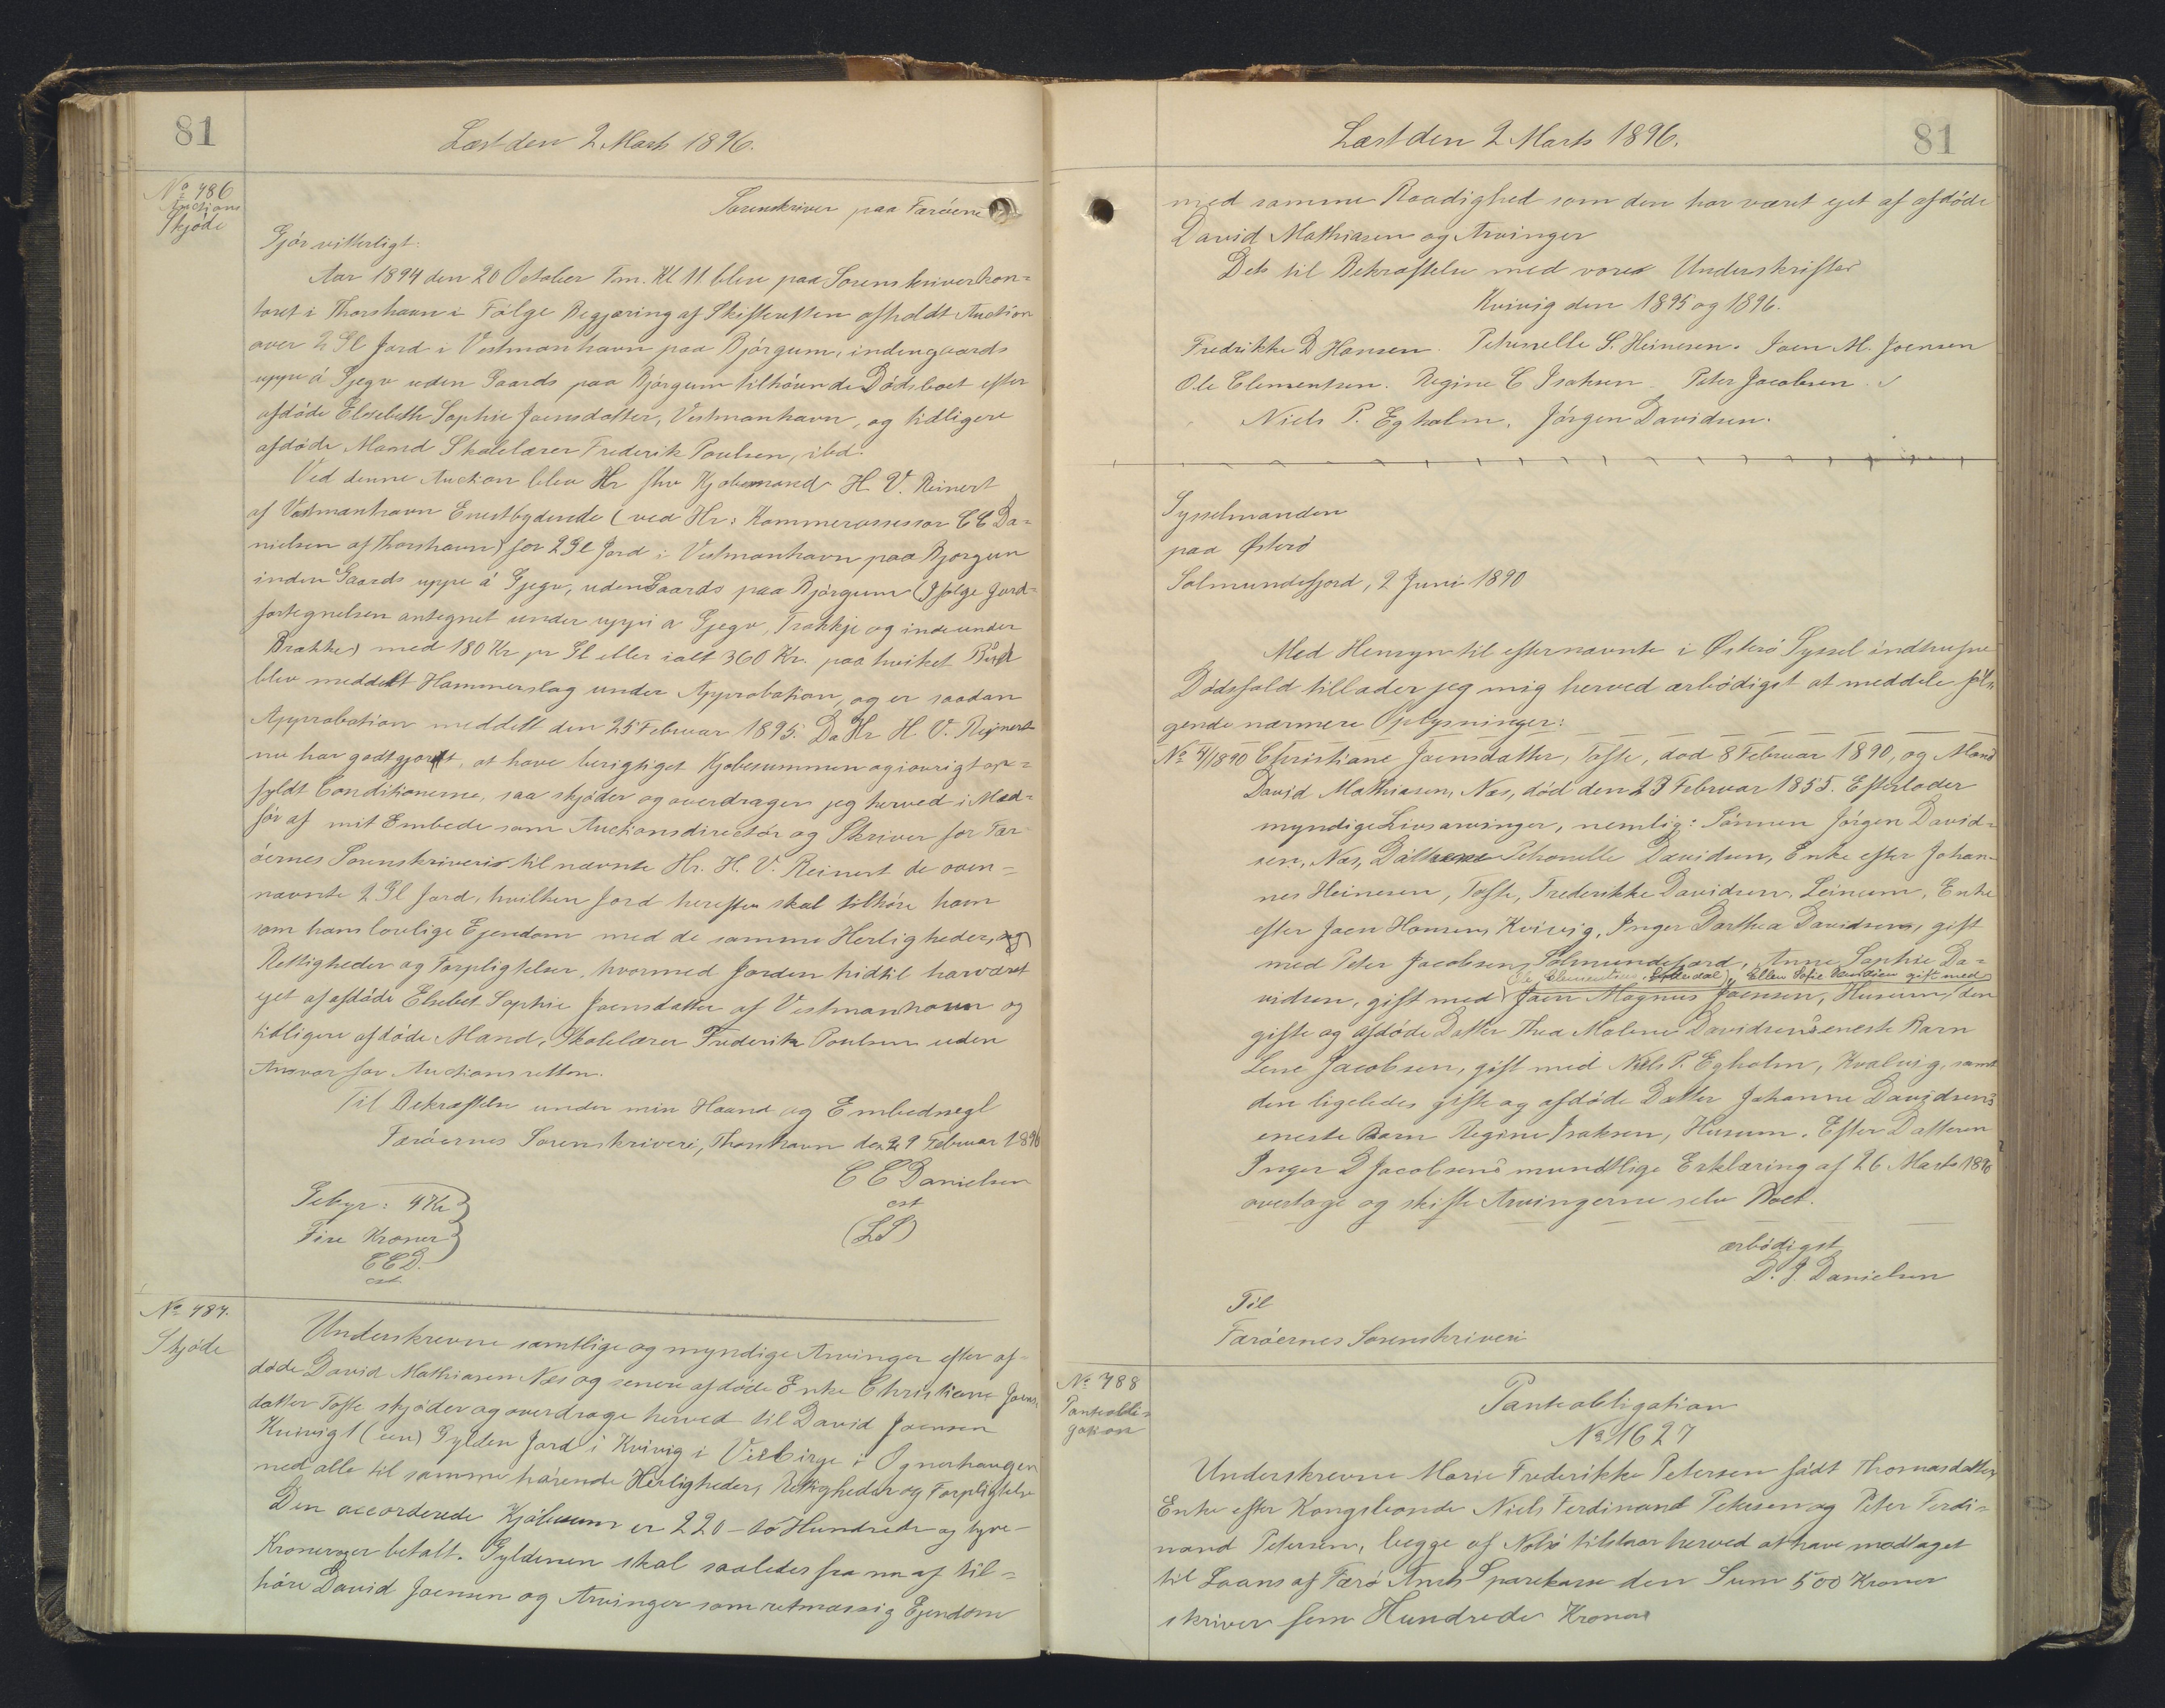 81
Læst den 2 Marts 1896.
No 786
Auctions
Skjøde
Sorenskriver paa Færøerne
Gjør vitterligt:
Aar 1894 den 20 October Fm. Kl 11. blev paa Sorenskriverkon=
toret i Thorshavn i Følge Begjæring af Skifteretten afholdt Auction
over 2 Gl Jord i Vestmanhavn paa Bjørgum, indengaards
uppe á Gjegv uden Gaards paa Bjørgum tilhørende Dødsboet efter
afdøde Elsebeth Sophie Joensdatter, Vestmanhavn, og tidligere
afdøde Mand Skolelærer Frederik Poulsen, ibd.
Ved denne Auction blev Hr fhv Kjøbmand H. V. Reinert
af Vestmanhavn Enestbydende (ved Hr: Kammerassessor C C Da=
nielsen af Thorshavn) for 2 Gl Jord i Vestmanhavn paa Bjørgum
inden Gaards uppe á Gjegv, uden Gaards paa Bjørgum (Ifølge Jord=
fortegnelsen antegnet under uppi a Gjegv, Trakkje og inde under
Brakke) med 180 Kr pr Gl eller ialt 360 Kr. paa hvilket Bud
blev meddelt Hammerslag under Approbation, og er saadan
Approbation meddelt den 25 Februar 1895. Da Hr H. V. Reinert
nu har godtgjort, at have berigtiget Kjøbesummen og iøvrigt op=
fyldt Conditionerne, saa skjøder og overdrager jeg herved i Med=
før af mit Embede som Auctionsdirectør og Skriver for Fær
øernes Sorenskriveri til nævnte Hr. H. V. Reinert de oven=
nævnte 2 Gl Jord, hvilken Jord herefter skal tilhøre ham
som hans lovlige Ejendom med de samme Herligheder, og
Rettigheder og Forpligtelser, hvormed Jorden hidtil har været
ejet af afdøde Elsebet Sophie Joensdatter af Vestmanhavn og
tidligere afdøde Mand, Skolelærer Frederik Poulsen uden
Ansvar for Auctionsretten.
Til Bekræftelse under min Haand og Embedsegl
Færøernes Sorenskriveri, Thorshavn den 29 Februar 1896
C C Danielsen
cst
(LS)
Gebyr: 4 Kr
Fire Kroner
C C D.
cst.
No 787.
Skjøde
Underskrevne samtlige og myndige Arvinger efter af=
døde David Mathiasen Næs og senere afdøde Enke Christiane Joens
datter Tofte skjøder og overdrage herved til David Joensen
Kvivig 1 (een) Gylden Jord i Kvivig i Vesbirge i Ognerhaugen
med alle til samme hørende Herligheder, Rettigheder og Forpligtelse
Den accorderede Kjøbesum er 220 - to Hundrede og tyve -
Kroner er betalt. Gyldenen skal saaledes fra nu af til=
høre David Joensen og Arvinger som retmæssig Ejendom
Læst den 2 Marts 1896.
81
med samme Raadighed som den har været ejet af afdøde
David Mathiasen og Arvinger
Dets til Bekræftelse med vores Underskrifter
Kvivig den 1895 og 1896.
Fredrikke D Hansen. Petrinelle S. Heinesen. Joen M. Joensen
Ole Clementsen. Regine C Isaksen. Peter Jacobsen.
Niels P. Egholm. Jørgen Davidsen.
Sysselmanden
paa Østerø
Solmundefjord, 2 Juni 1890
Med Hensyn til efternævnte i Østerø Syssel indtrufne
Dødsfald tillader jeg mig herved ærbødigst at meddele føl=
gende nærmere Oplysninger:
No 4/1890 Christiane Joensdatter, Tofte, død 8 Februar 1890, og Mand
David Mathiasen, Næs, død den 23 Februar 1855. Efterlader
myndige Livsarvinger, nemlig: Sønnen Jørgen David=
sen, Næs, Døttrene Petronelle Davidsen, Enke efter Johan=
nes Heinesen, Tofte, Frederikke Davidsen, Leinum, Enke
efter Joen Hansen, Kvivig, Inger Dorthea Davidsen, gift
med Peter Jacobsen, Solmundefjord, Anne Sophie Da=
Ole Clementsen, og Ellen Sofie Davidsen gift med
vidsen, gift med Joen Magnus Joensen, Husum, den
gifte og afdøde Datter Thea Malene Davidsens eneste Barn
Lene Jacobsen, gift med Niels P. Egholm, Kvalvig, samt
den ligeledes gifte og afdøde Datter Johanne Davidsens
eneste Barn Regine Isaksen, Husum. Efter Datteren
Inger D Jacobsens mundtlige Erklæring af 26 Marts 1890
overtage og skifte Arvingerne selv Boet.
ærbødigst
D. J. Danielsen
Til
Færøernes Sorenskriveri
No 788
Pantobli=
gation
Pantobligation
No 1627
Underskrevne Marie Frederikke Petersen født Thomasdatter
Enke efter Kongsbonde Niels Ferdinand Petersen og Peter Ferdi=
nand Petersen, begge af Nolsø tilstaar herved at have modtaget
til Laans af Færø Amts Sparekasse den Sum 500 Kroner
skriver fem Hundrede Kroner